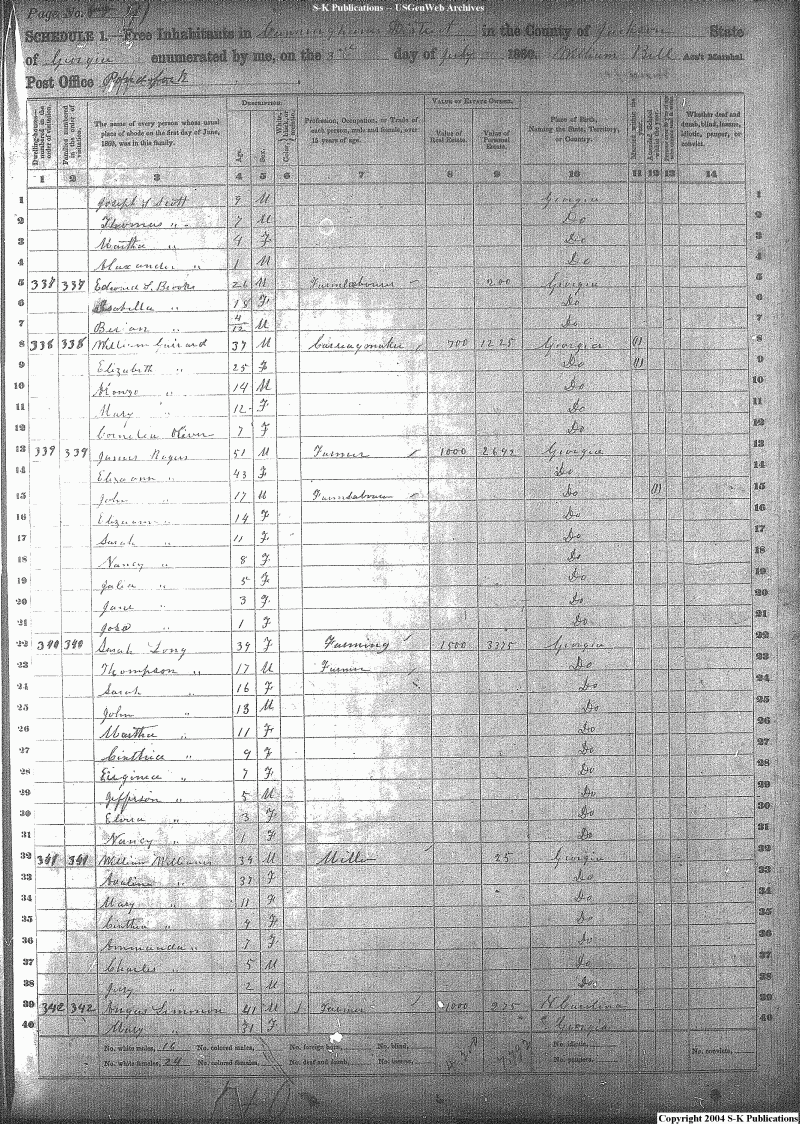 S-K Publications -- USGenWeb Archives
Page No.
SCHEDULE 1.—Free Inhabitants in District in the County of Jackson State
of Georgia enumerated by me, on the 3rd day of July 1860. William Bell Ass't Marshal.
Post Office
Dwelling-houses—numbered in the order of visitation.
Families numbered in the order of visitation.
The name of every person whose usual place of abode on the first day of June, 1860, was in this family.
DESCRIPTION.
Age.
Sex.
Color, White, black, or mulatto.
Profession, Occupation, or Trade of each person, male and female, over 15 years of age.
VALUE OF ESTATE OWNED.
Value of Real Estate.
Value of Personal Estate.
Place of Birth, Naming the State, Territory, or Country.
Married within the year.
Attended School within the year.
Whether deaf and dumb, blind, insane, idiotic, pauper, or convict.
1 2 3 4 5 6 7 8 9 10 11 12 13 14
1 Joseph Scott 9 M Georgia 1
2 Thomas " 7 M Do 2
3 Martha " 4 F Do 3
4 Alexander " 1 M Do 4
5 337 337 Edward L. Brooks 26 M Farmlabourer 200 Georgia 5
6 Isabella " 18 F Do 6
7 " 4/12 M Do 7
8 338 338 William 37 M Carriagmaker 700 1225 Georgia (1) 8
9 Elizabeth " 25 F Do (1) 9
10 Alonzo " 14 M Do 10
11 Mary " 12 F Do 11
12 Cornelia Oliver 7 F Do 12
13 339 339 James Rogers 51 M Farmer 1000 2692 Georgia 13
14 Elizaann " 43 F Do 14
15 John " 17 M Farmlabourer Do (1) 15
16 Elizaann " 14 F Do 16
17 Sarah " 11 F Do 17
18 Nancy " 8 F Do 18
19 Julia " 5 F Do 19
20 Jane " 3 F Do 20
21 " 1 F Do 21
22 340 340 Sarah Long 39 F Farming 1500 3775 Georgia 22
23 Thompson " 17 M Farmer Do 23
24 Sarah " 16 F Do 24
25 John " 13 M Do 25
26 Martha " 11 F Do 26
27 Cinthia " 9 F Do 27
28 Virginia " 7 F Do 28
29 Jefferson " 5 M Do 29
30 " 3 F Do 30
31 Nancy " 1 F Do 31
32 341 341 William Williams 39 M Miller 25 Georgia 32
33 " 37 F Do 33
34 Mary " 11 F Do 34
35 Cinthia " 9 F Do 35
36 Ammanda " 7 F Do 36
37 Charles " 5 M Do 37
38 " 2 M Do 38
39 342 342 Angus 41 M Farmer 1000 275 N Carolina 39
40 Mary " 31 F Georgia 40
No. white males, 16 No. colored males, No. foreign born, No. blind, No. idiotic,
No. white females, 24 No. colored females, No. deaf and dumb, No. insane, No. paupers, No. convicts,
Copyright 2004 S-K Publications